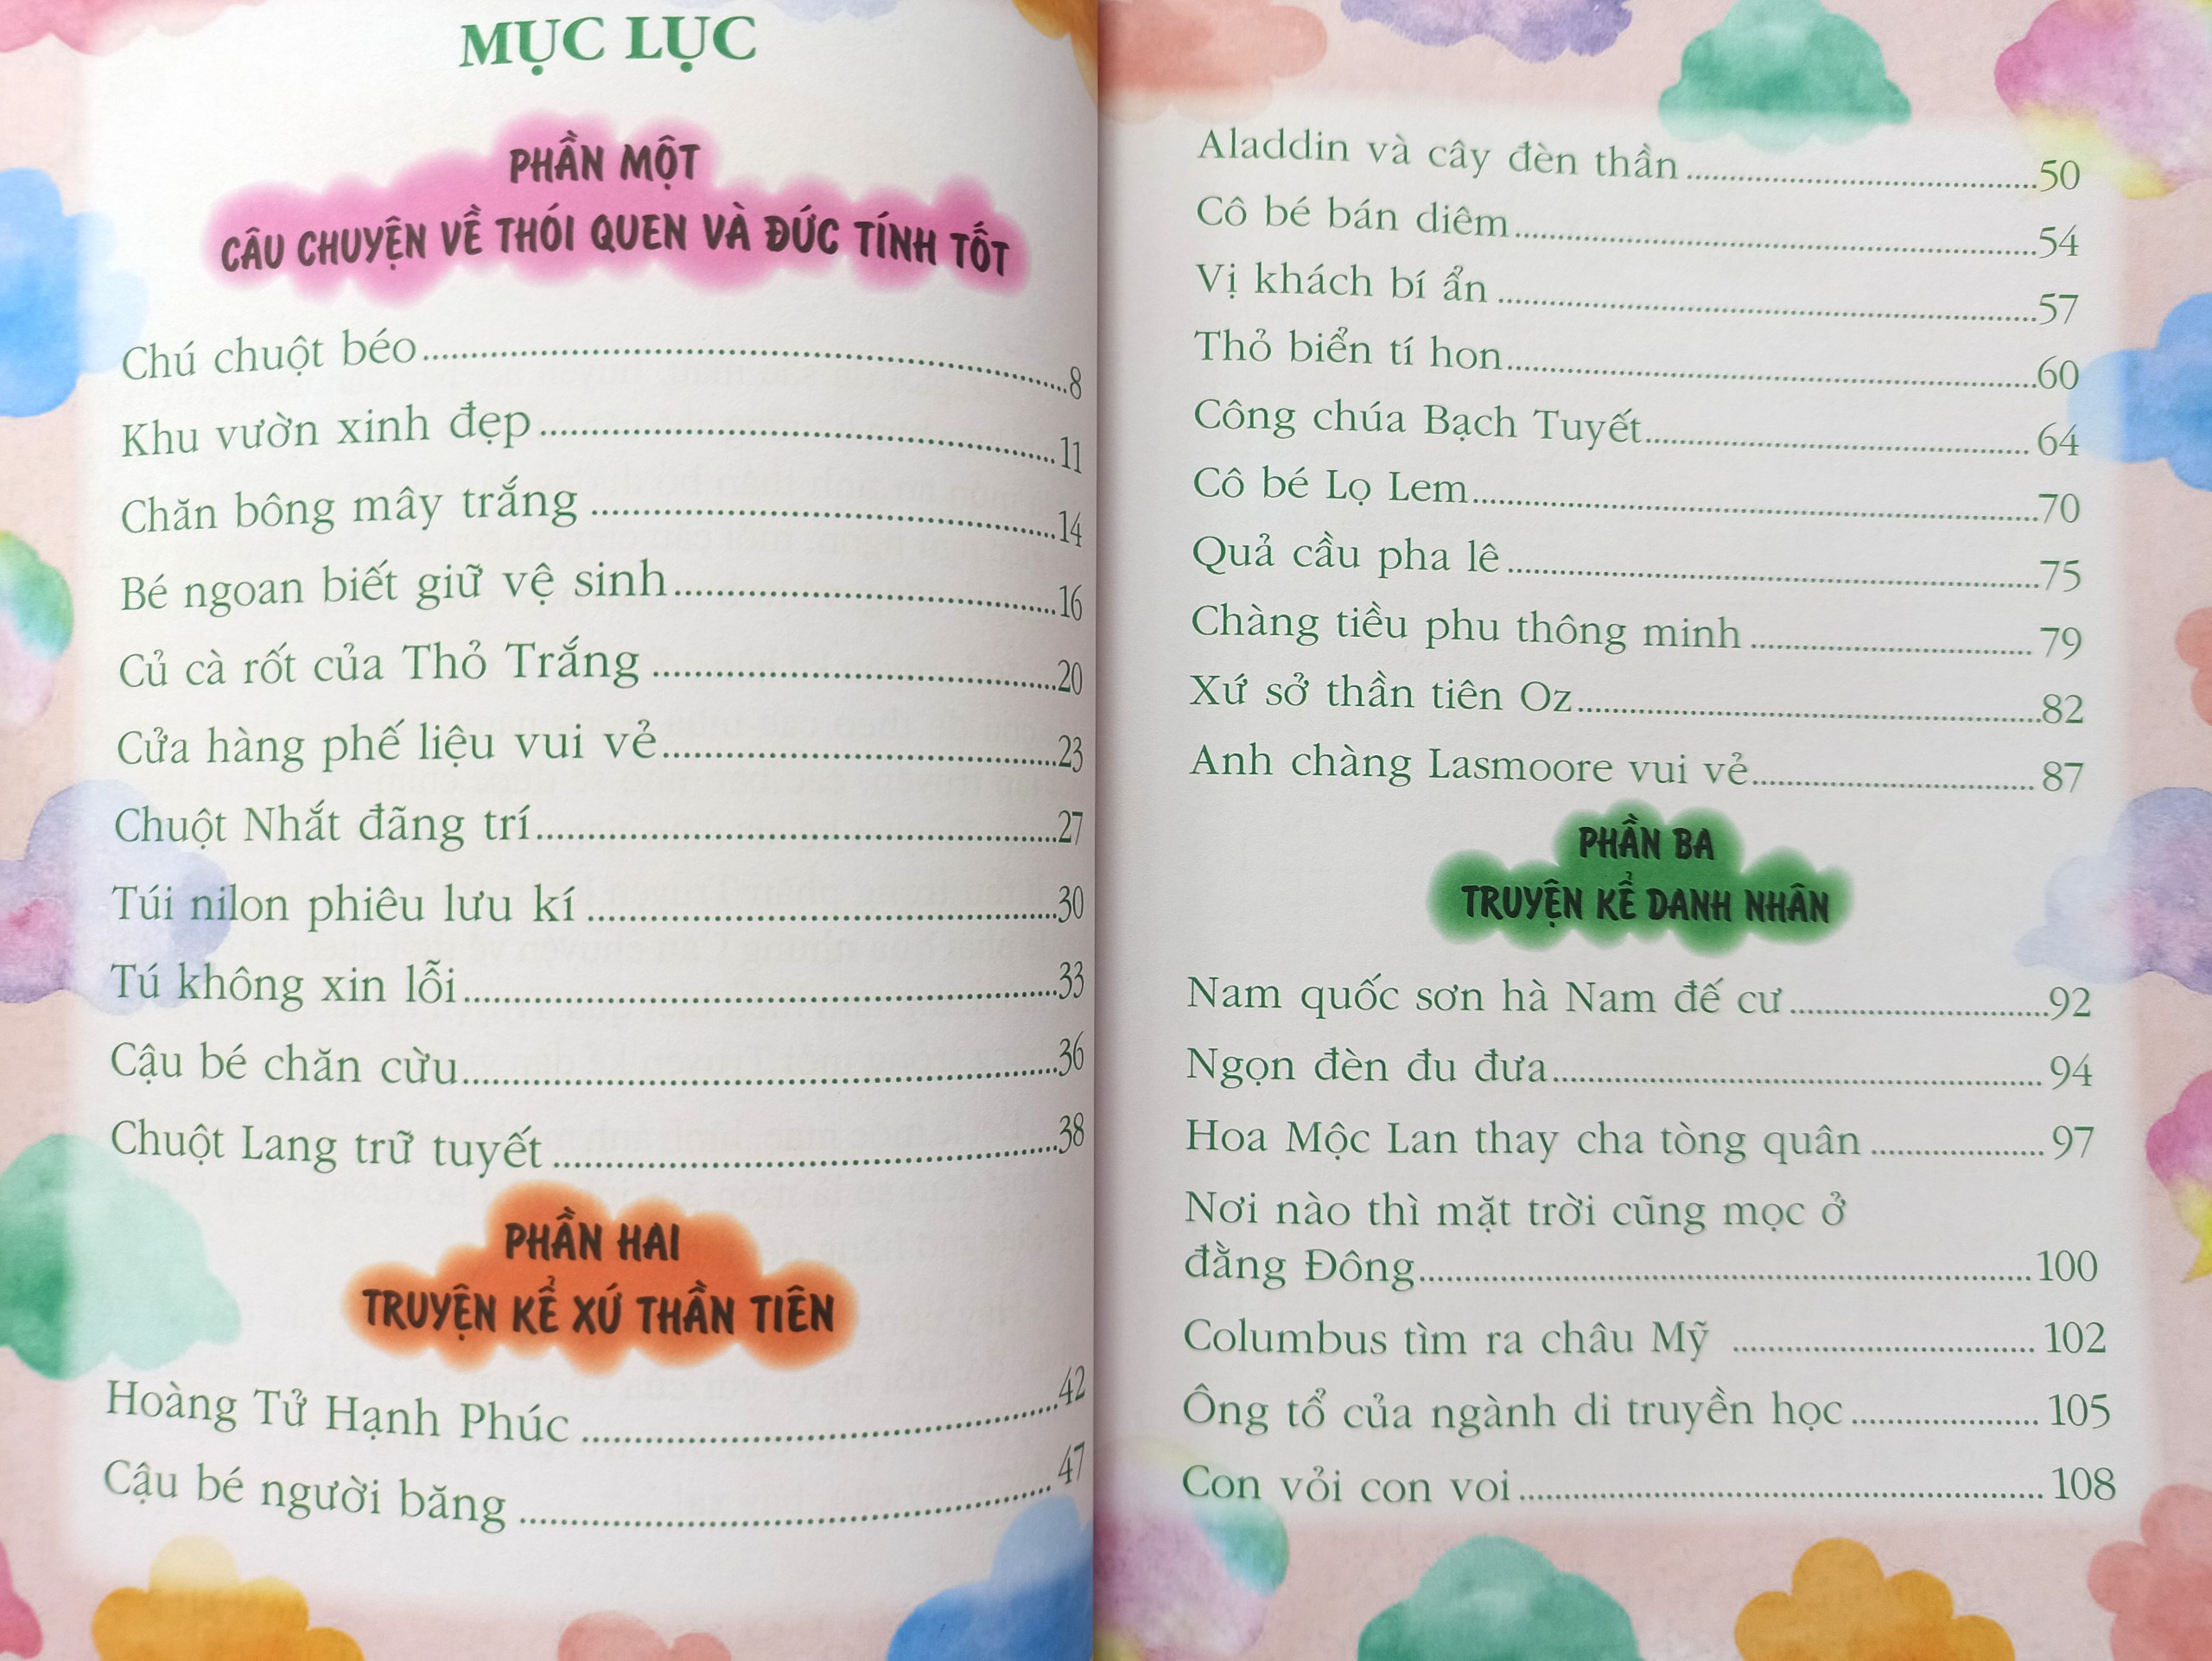 MỤC LỤC
PHẦN MỘT
CÂU CHUYỆN VỀ THÓI QUEN VÀ ĐỨC TÍNH TỐT
Chú chuột béo..........8
Khu vườn xinh đẹp..........11
Chăn bông mây trắng..........14
Bé ngoan biết giữ vệ sinh..........16
Củ cà rốt của Thỏ Trắng..........20
Cửa hàng phế liệu vui vẻ..........23
Chuột Nhắt đãng trí..........27
Túi nilon phiêu lưu kí..........30
Tú không xin lỗi..........33
Cậu bé chăn cừu..........36
Chuột Lang trữ tuyết..........38
PHẦN HAI
TRUYỆN KỂ XỨ THẦN TIÊN
Hoàng Tử Hạnh Phúc..........42
Cậu bé người băng..........47
Aladdin và cây đèn thần..........50
Cô bé bán diêm..........54
Vị khách bí ẩn..........57
Thỏ biển tí hon..........60
Công chúa Bạch Tuyết..........64
Cô bé Lọ Lem..........70
Quả cầu pha lê..........75
Chàng tiều phu thông minh..........79
Xứ sở thần tiên Oz..........82
Anh chàng Lasmoore vui vẻ..........87
PHẦN BA
TRUYỆN KỂ DANH NHÂN
Nam quốc sơn hà Nam đế cư..........92
Ngọn đèn đu đưa..........94
Hoa Mộc Lan thay cha tòng quân..........97
Nơi nào thì mặt trời cũng mọc ở
đằng Đông..........100
Columbus tìm ra châu Mỹ..........102
Ông tổ của ngành di truyền học..........105
Con vỏi con voi..........108